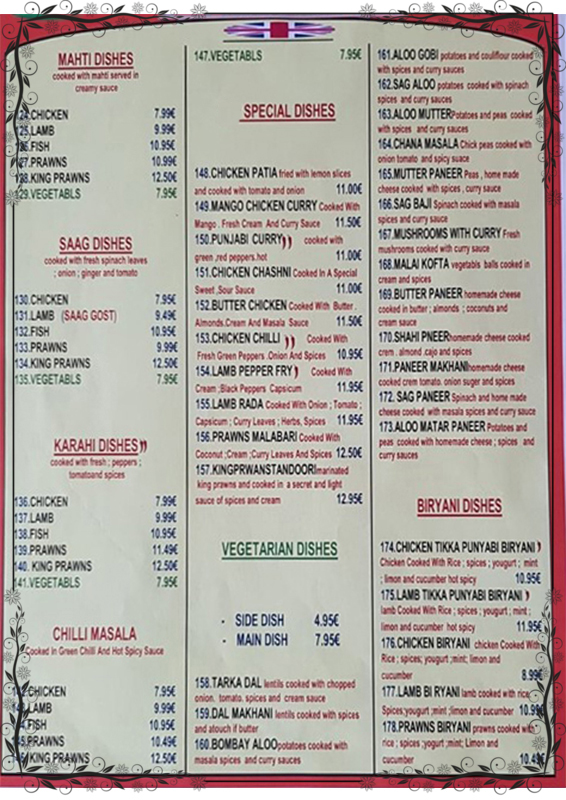 MAHTI DISHES
cooked with mahti served in
creamy sauce
124.CHICKEN 7.99€
125.LAMB 9.99€
126.FISH 10.95€
127.PRAWNS 10.99€
128.KING PRAWNS 12.50€
129.VEGETABLS 7.95€
SAAG DISHES
cooked with fresh spinach leaves
; onion ; ginger and tomato
130.CHICKEN 7.95€
131.LAMB (SAAG GOST) 9.49€
132.FISH 10.95€
133.PRAWNS 9.99€
134.KING PRAWNS 12.50€
135.VEGETABLS 7.95€
KARAHI DISHES
cooked with fresh ; peppers ;
tomatoand spices
136.CHICKEN 7.99€
137.LAMB 9.99€
138.FISH 10.95€
139.PRAWNS 11.49€
140. KING PRAWNS 12.50€
141.VEGETABLS 7.95€
CHILLI MASALA
Cooked in Green Chilli And Hot Spicy Sauce
CHICKEN 7.95€
LAMB 9.99€
FISH 10.95€
PRAWNS 10.49€
KING PRAWNS 12.50€
147.VEGETABLS 7.95€
SPECIAL DISHES
148.CHICKEN PATIA fried with lemon slices
and cooked with tomato and onion 11.00€
149.MANGO CHICKEN CURRY Cooked With
Mango . Fresh Cream And Curry Sauce 11.50€
150.PUNJABI CURRY cooked with
green ,red peppers.hot 11.00€
151.CHICKEN CHASHNI Cooked In A Special
Sweet ,Sour Sauce 11.00€
152.BUTTER CHICKEN Cooked With Butter .
Almonds.Cream And Masala Sauce 11.50€
153.CHICKEN CHILLI Cooked With
Fresh Green Peppers .Onion And Spices 10.95€
154.LAMB PEPPER FRY Cooked With
Cream ;Black Peppers Capsicum 11.95€
155.LAMB RADA Cooked With Onion ; Tomato ;
Capsicum ; Curry Leaves ; Herbs, Spices 11.95€
156.PRAWNS MALABARI Cooked With
Coconut ;Cream ;Curry Leaves And Spices 12.50€
157.KINGPRWANSTANDOORImarinated
king prawns and cooked in a secret and light
sauce of spices and cream 12.95€
VEGETARIAN DISHES
- SIDE DISH 4.95€
- MAIN DISH 7.95€
158.TARKA DAL lentils cooked with chopped
onion. tomato. spices and cream sauce
159.DAL MAKHANI lentils cooked with spices
and atouch if butter
160.BOMBAY ALOOpotatoes cooked with
masala spices and curry sauces
161.ALOO GOBI potatoes and couliflour cooked
with spices and curry sauces
162.SAG ALOO potatoes cooked with spinach
spices and curry sauces
163.ALOO MUTTERPotatoes and peas cooked
with spices and curry sauces
164.CHANA MASALA Chick peas cooked with
onion tomato and spicy suace
165.MUTTER PANEER Peas , home made
cheese cooked with spices , curry sauce
166.SAG BAJI Spinach cooked with masala
spices and curry sauce
167.MUSHROOMS WITH CURRY Fresh
mushrooms cooked with curry sauce
168.MALAI KOFTA vegetabls balls cooked in
cream and spices
169.BUTTER PANEER homemade cheese
cooked in butter ; almonds ; coconuts and
cream sauce
170.SHAHI PNEERhomemade cheese cooked
crem . almond .cajo and spices
171.PANEER MAKHANIhomemade cheese
cooked crem tomato. onion suger and spices
172. SAG PANEER Spinach and home made
cheese cooked with masala spices and curry sauce
173.ALOO MATAR PANEER Potatoes and
peas cooked with homemade cheese ; spices and
curry sauces
BIRYANI DISHES
174.CHICKEN TIKKA PUNYABI BIRYANI
Chicken Cooked With Rice ; spices ; yogurt ; mint
; limon and cucumber hot spicy 10.95€
175.LAMB TIKKA PUNYABI BIRYANI
lamb Cooked With Rice ; spices ; yogurt ; mint ;
limon and cucumber hot spicy 11.95€
176.CHICKEN BIRYANI chicken Cooked With
Rice ; spices; yogurt ;mint; limon and
cucumber 8.99€
177.LAMB BI RYANI lamb cooked with rice
Spices;yogurt ;mint ;limon and cucumber 10.99€
178.PRAWNS BIRYANI prawns cooked with
rice ; spices ;yogurt ;mint; Limon and
cucumber 10.49€